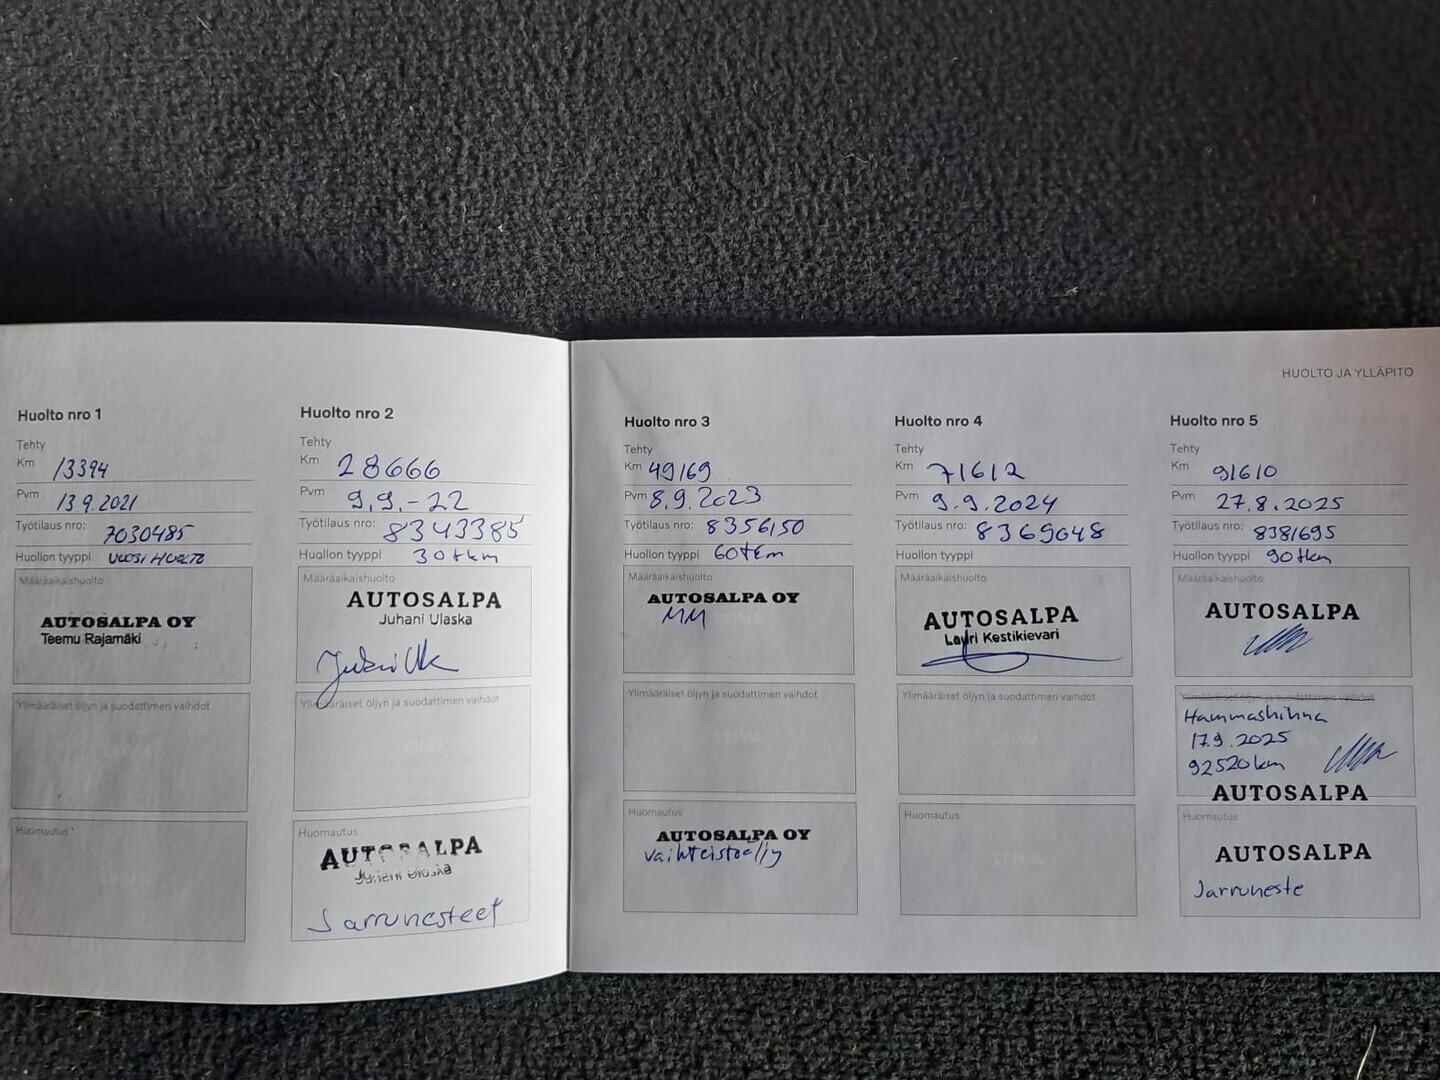 HUOLTO JA YLLÄPITO
Huolto nro 1
Tehty
Km 13394
Pvm 13.9.2021
Työtilaus nro: 7030485
Huollon tyyppi VUOSIHUOLTO
Määräaikaishuolto
AUTOSALPA OY
Teemu Rajamäki
Ylimääräiset öljyn ja suodattimen vaihdot
Huomautus
Huolto nro 2
Tehty
Km 28666
Pvm 9.9.-22
Työtilaus nro: 8343385
Huollon tyyppi 30tkm
Määräaikaishuolto
AUTOSALPA
Juhani Ulaska
Ylimääräiset öljyn ja suodattimen vaihdot
LEIMA
Huomautus
AUTOSALPA
Juhani Ulaska
Jarrunesteet
Huolto nro 3
Tehty
Km 49169
Pvm 8.9.2023
Työtilaus nro: 8356150
Huollon tyyppi 60tkm
Määräaikaishuolto
AUTOSALPA OY
LEIMA
Ylimääräiset öljyn ja suodattimen vaihdot
LEIMA
Huomautus
AUTOSALPA OY
vaihteistoöljy
Huolto nro 4
Tehty
Km 71612
Pvm 9.9.2024
Työtilaus nro: 8369048
Huollon tyyppi
Määräaikaishuolto
AUTOSALPA
Lauri Kestikievari
Ylimääräiset öljyn ja suodattimen vaihdot
LEIMA
Huomautus
LEIMA
Huolto nro 5
Tehty
Km 91610
Pvm 27.8.2025
Työtilaus nro: 8381695
Huollon tyyppi 90tkm
Määräaikaishuolto
AUTOSALPA
Ylimääräiset öljyn ja suodattimen vaihdot
Hammashihna
17.9.2025
92520km
AUTOSALPA
Huomautus
AUTOSALPA
Jarruneste